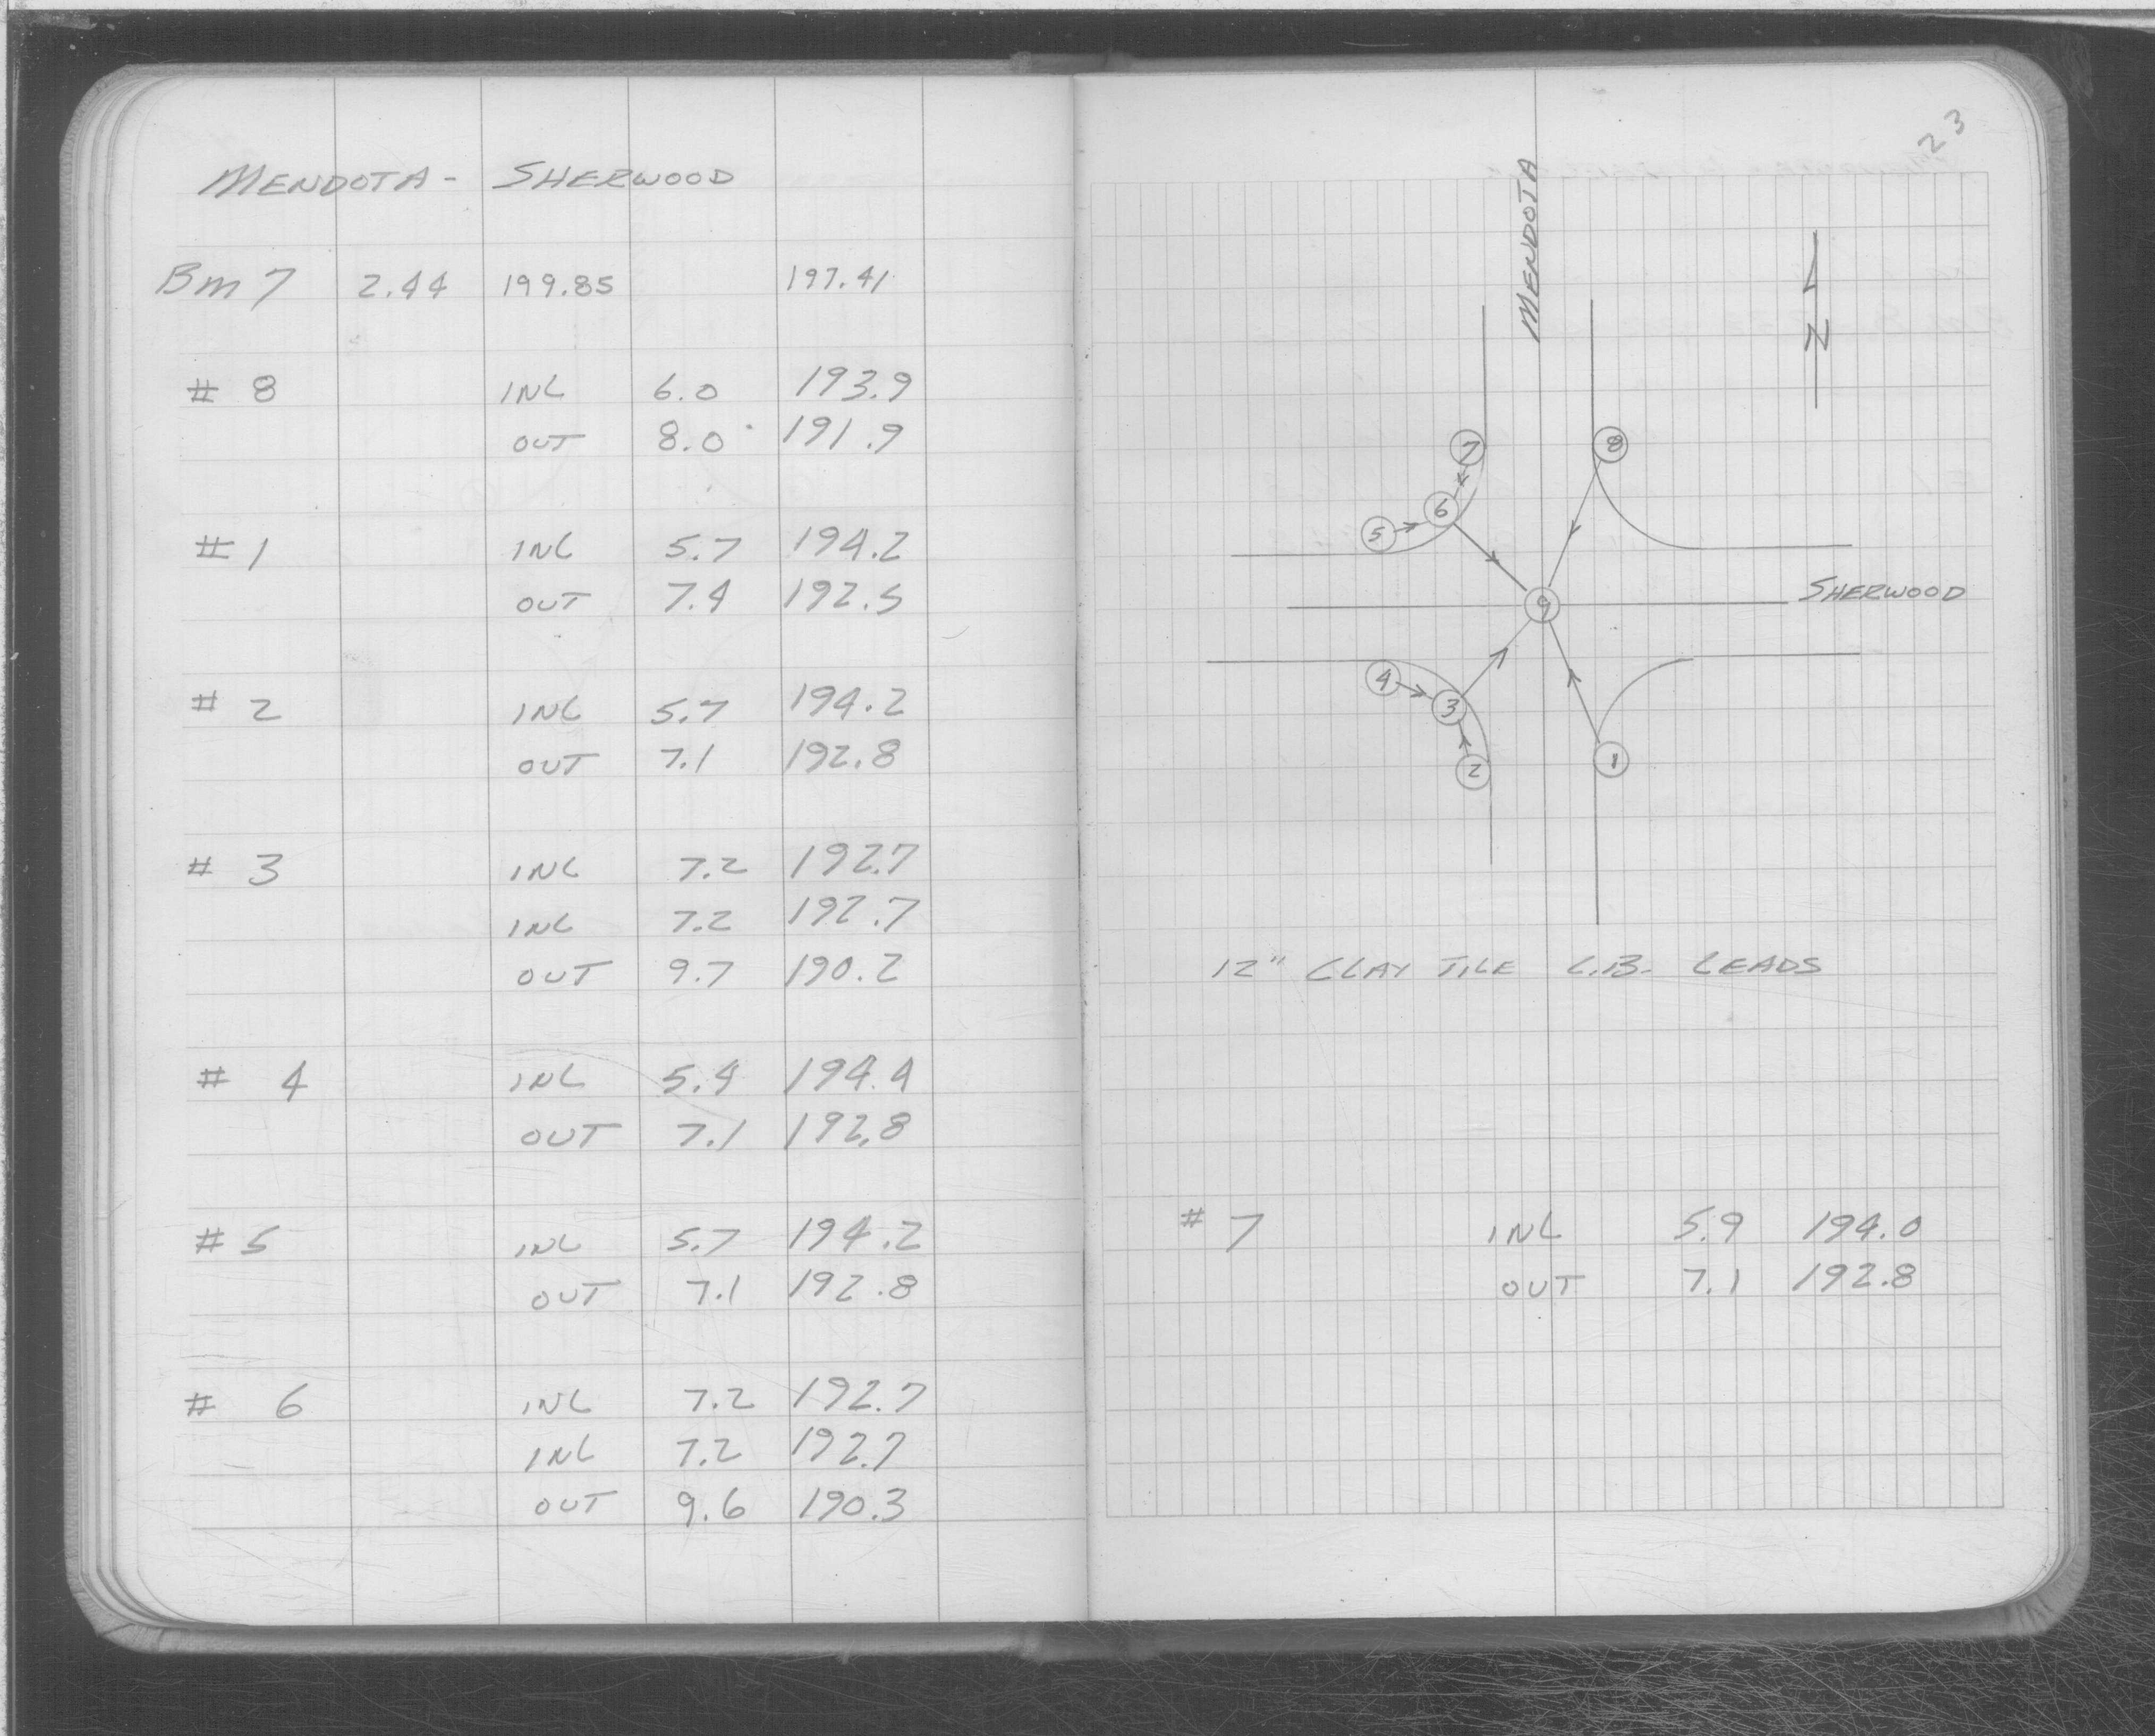 MENDOTA - SHERWOOD
Bm 7 2.44 199.85 197.41
# 8 INL 6.0 193.9
OUT 8.0 191.9
# 1 INL 5.7 194.2
OUT 7.4 192.5
# 2 INL 5.7 194.2
OUT 7.1 192.8
# 3 INL 7.2 192.7
INL 7.2 192.7
OUT 9.7 190.2
# 4 INL 5.4 194.4
OUT 7.1 192.8
# 5 INL 5.7 194.2
OUT 7.1 192.8
# 6 INL 7.2 192.7
INL 7.2 192.7
OUT 9.6 190.3
23
MENDOTA
N
7 8
6
5
9
SHERWOOD
4
3
2 1
12" CLAY TILE C.B. LEADS
# 7 INL 5.9 194.0
OUT 7.1 192.8